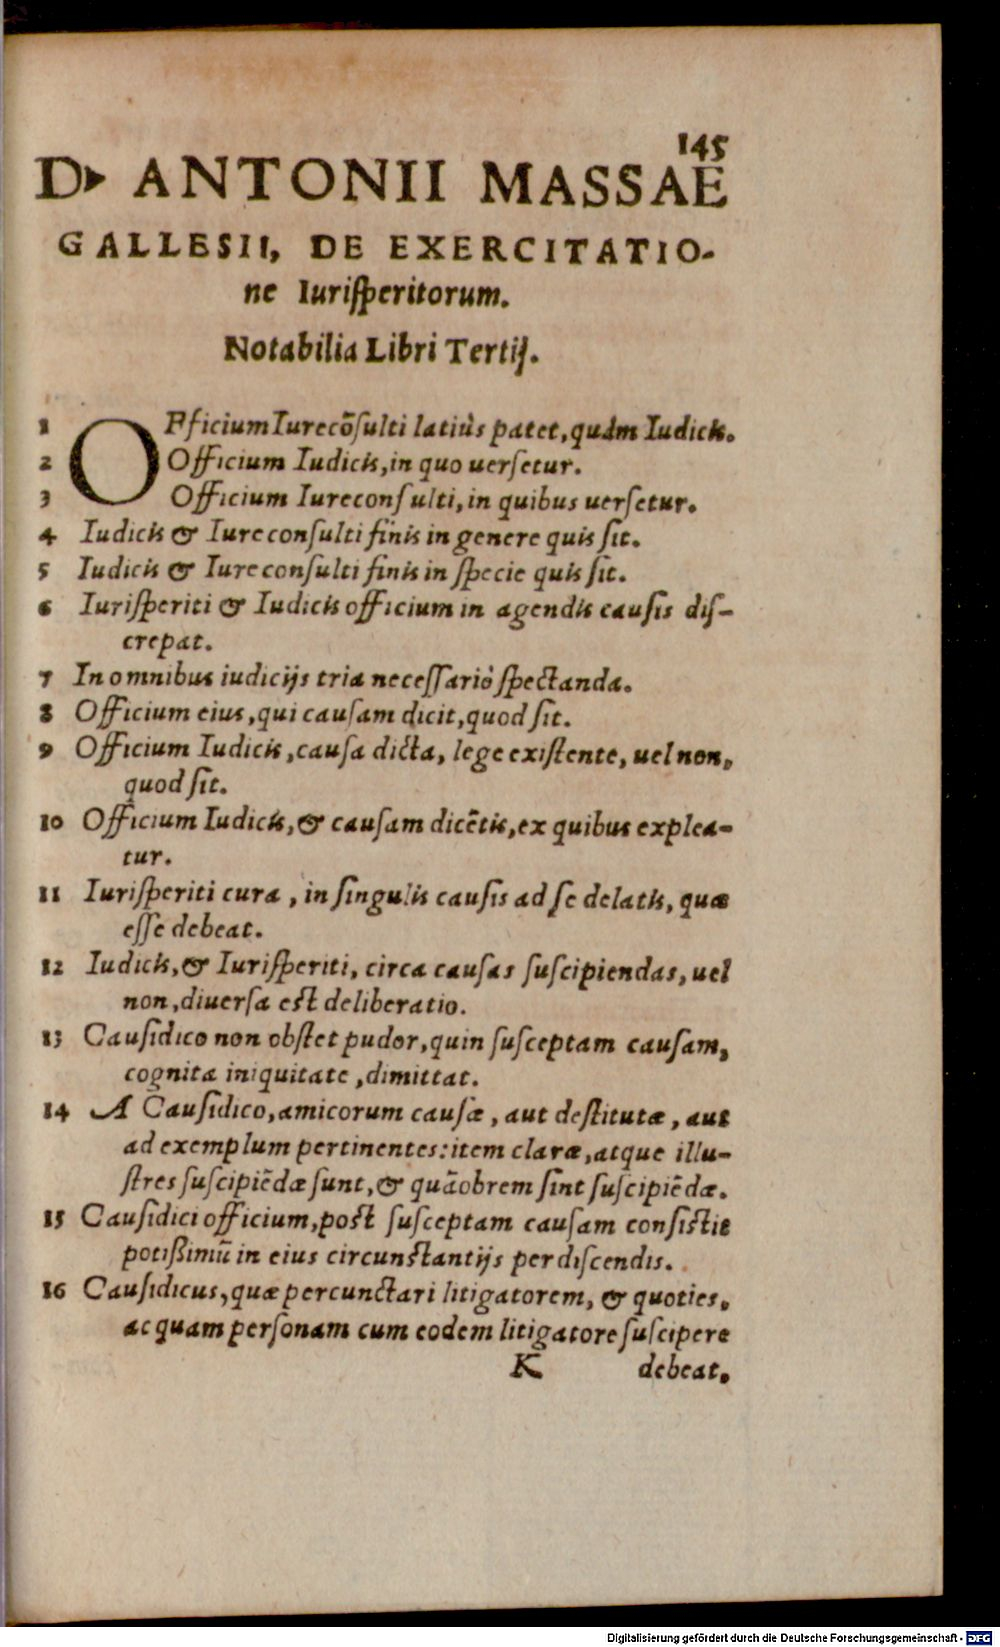 145
D. ANTONII MASSAE
GALLESII, DE EXERCITATIO-
ne Iuriſperitorum.
Notabilia Libri Tertij.
1 OFficium Iurecõſulti latiùs patet, quàm Iudicis.
2 Officium Iudicis, in quo uerſetur.
3 Officium Iureconſulti, in quibus uerſetur.
4 Iudicis & Iureconſulti finis in genere quis ſit.
5 Iudicis & Iureconſulti finis in ſpecie quis ſit.
6 Iuriſperiti & Iudicis officium in agendis cauſis diſ-
crepat.
7 In omnibus iudicijs tria neceſſariò ſpectanda.
8 Officium eius, qui cauſam dicit, quod ſit.
9 Officium Iudicis, cauſa dicta, lege exiſtente, uel non,
quod ſit.
10 Officium Iudicis, & cauſam dicẽtis, ex quibus explea-
tur.
11 Iuriſperiti cura, in ſingulis cauſis ad ſe delatis, quæ
eſſe debeat.
12 Iudicis, & Iuriſperiti, circa cauſas ſuſcipiendas, uel
non, diuerſa eſt deliberatio.
13 Cauſidico non obſtet pudor, quin ſuſceptam cauſam,
cognita iniquitate, dimittat.
14 A Cauſidico, amicorum cauſæ, aut deſtitutæ, aut
ad exemplum pertinentes: item claræ, atque illu-
ſtres ſuſcipiẽdæ ſunt, & quãobrem ſint ſuſcipiẽdæ.
15 Cauſidici officium, poſt ſuſceptam cauſam conſiſtit
potißimũ in eius circunſtantijs perdiſcendis.
16 Cauſidicus, quæ percunctari litigatorem, & quoties,
ac quam perſonam cum eodem litigatore ſuſcipere
K debeat.
Digitalisierung gefördert durch die Deutsche Forschungsgemeinschaft - DFG